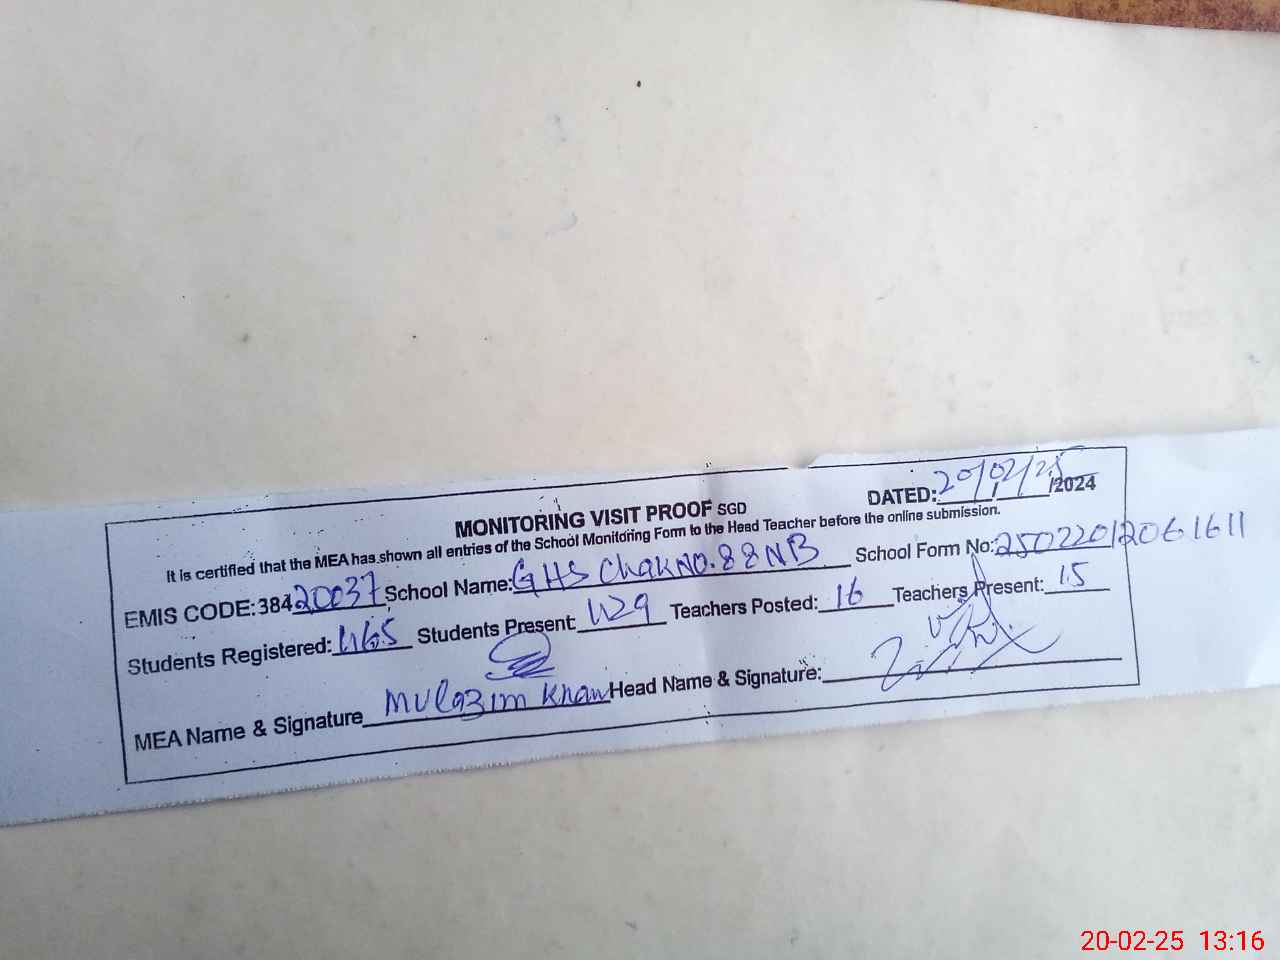 MONITORING VISIT PROOF SGD DATED: 20/02/25 /2024
It is certified that the MEA has shown all entries of the School Monitoring Form to the Head Teacher before the online submission.
EMIS CODE: 38420037 School Name: GHS Chak No. 88 NB School Form No: 25022012061611
Students Registered: 465 Students Present: 429 Teachers Posted: 16 Teachers Present: 15
MEA Name & Signature Mulazim Khan Head Name & Signature:
20-02-25 13:16